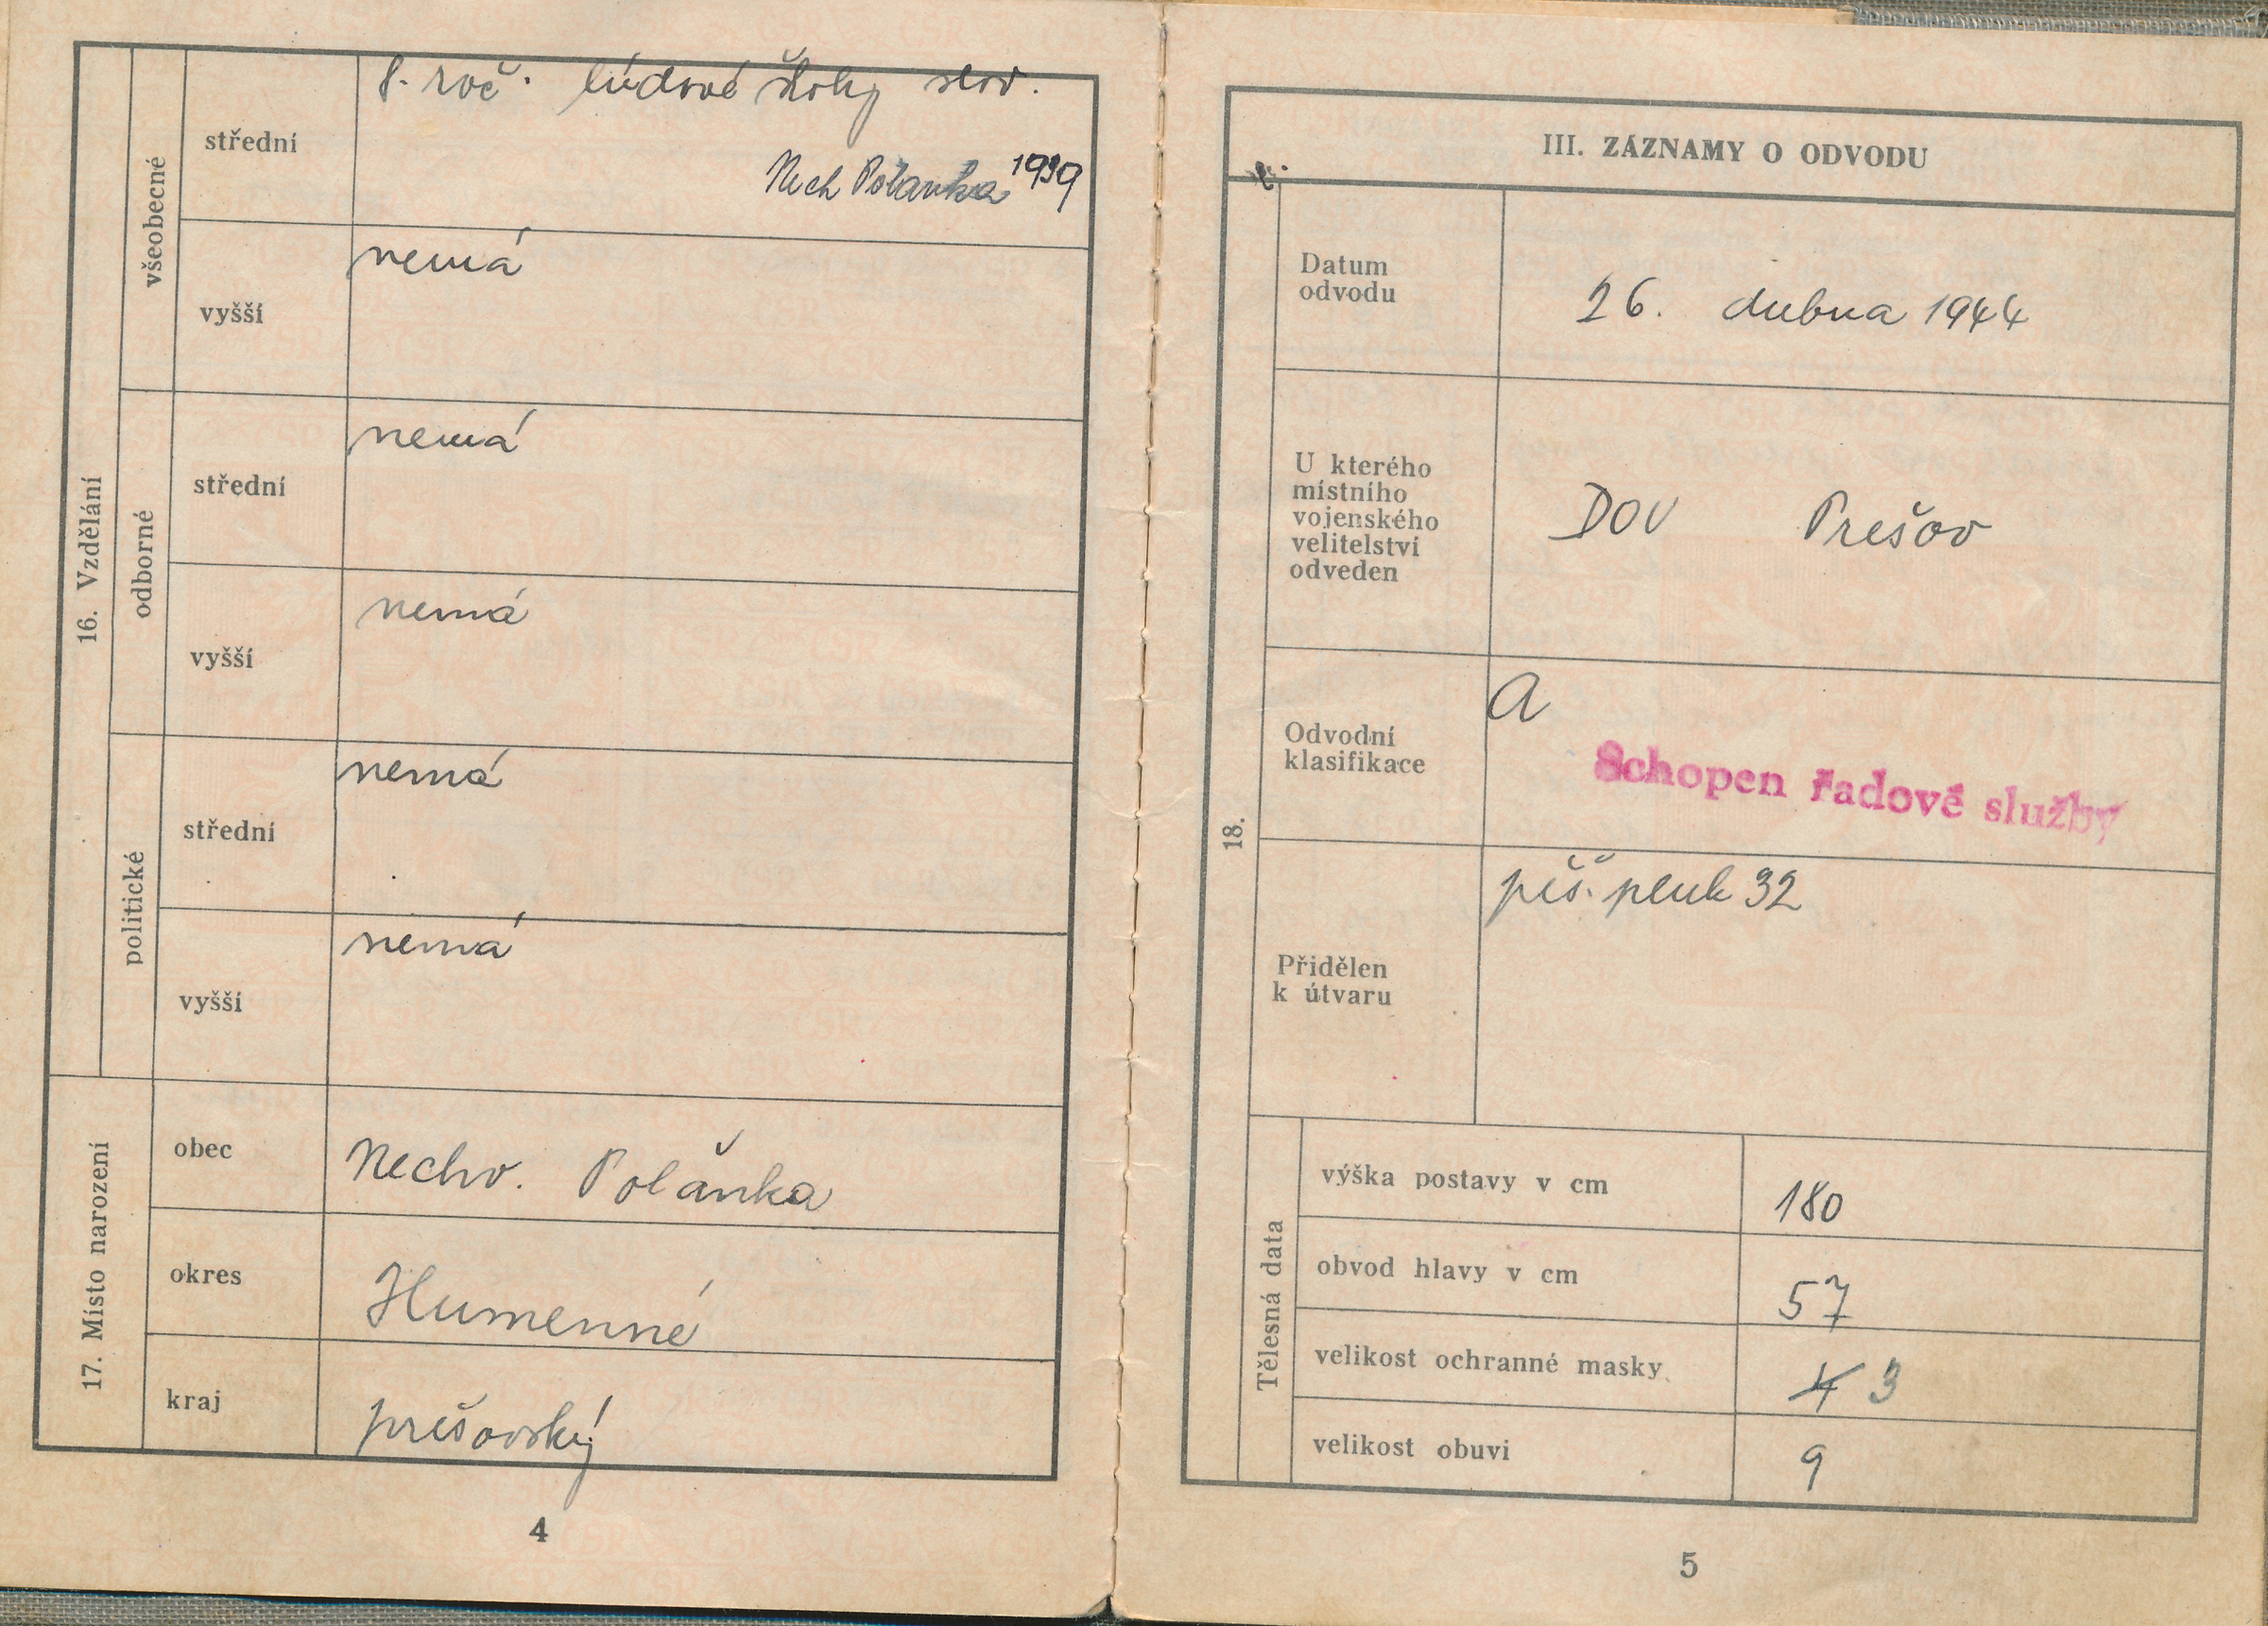 16. Vzdělání
všeobecné
střední
8. roč. lúdové školy slov.
Nech Polanka 1939
vyšší
nemá
odborné
střední
nemá
vyšší
nemá
politické
střední
nemá
vyšší
nemá
17. Místo narození
obec
Nechv. Polánka
okres
Humenné
kraj
prešovský
4
III. ZÁZNAMY O ODVODU
18.
Datum
odvodu
26. dubna 1944
U kterého
místního
vojenského
velitelství
odveden
DOV Prešov
Odvodní
klasifikace
A
Schopen řadové služby
Přidělen
k útvaru
pěš. pluk 32
Tělesná data
výška postavy v cm
180
obvod hlavy v cm
57
velikost ochranné masky
4 3
velikost obuvi
9
5